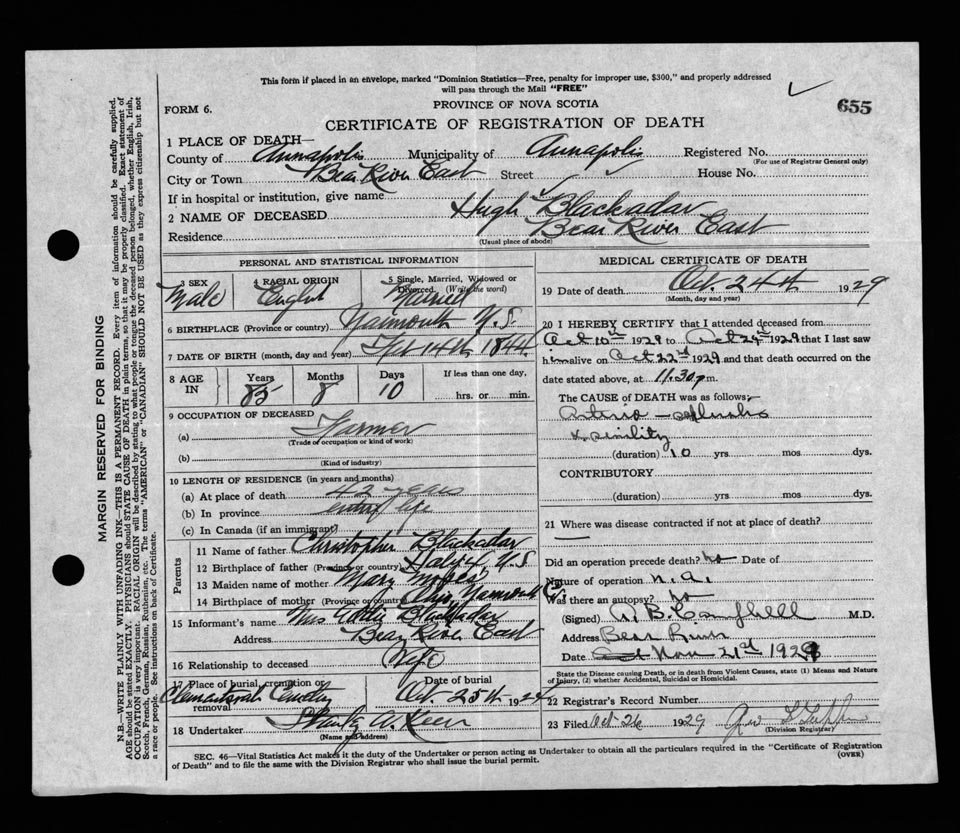 This form if placed in an envelope, marked "Dominion Statistics—Free, penalty for improper use, $300," and properly addressed
will pass through the Mail "FREE"
FORM 6.
PROVINCE OF NOVA SCOTIA
655
CERTIFICATE OF REGISTRATION OF DEATH
1 PLACE OF DEATH—
County of Annapolis Municipality of Annapolis Registered No.
(For use of Registrar General only)
City or Town Bear River East Street House No.
If in hospital or institution, give name
2 NAME OF DECEASED Hugh Blackadar
Residence Bear River East
(Usual place of abode)
PERSONAL AND STATISTICAL INFORMATION
3 SEX 4 RACIAL ORIGIN 5 Single, Married, Widowed or
Divorced. (Write the word)
Male English Married
6 BIRTHPLACE (Province or country) Yarmouth N.S.
7 DATE OF BIRTH (month, day and year) 14th 1844
8 AGE IN Years Months Days If less than one day,
85 8 10 hrs. or min.
9 OCCUPATION OF DECEASED
(a) Farmer
(Trade of occupation or kind of work)
(b)
(Kind of industry)
10 LENGTH OF RESIDENCE (in years and months)
(a) At place of death 42 years
(b) In province entire life
(c) In Canada (if an immigrant)
Parents
11 Name of father Christopher Blackadar
12 Birthplace of father (Province or country) Halifax N.S.
13 Maiden name of mother Mary
14 Birthplace of mother (Province or country) Ohio Yarmouth Co
15 Informant's name Mrs Blackadar
Address Bear River East
16 Relationship to deceased Wife
17 Place of burial, cremation or removal Date of burial
Clementsvale Cemetery Oct 25th 1924
18 Undertaker A. Keen
(Name and address)
MEDICAL CERTIFICATE OF DEATH
19 Date of death Oct. 24th 1929
(Month, day and year)
20 I HEREBY CERTIFY that I attended deceased from
Oct 10th 1929 to Oct 24th 1929 that I last saw
him alive on Oct 22nd 1929 and that death occurred on the
date stated above, at 11.30 p.m.
The CAUSE of DEATH was as follows:
Arterio-sclerosis
& senility
(duration) 10 yrs mos dys.
CONTRIBUTORY
(duration) yrs mos dys.
21 Where was disease contracted if not at place of death?
—
Did an operation precede death? no Date of
Nature of operation n.a.
Was there an autopsy? no
(Signed) B. Campbell M.D.
Address Bear River
Date Nov 21st 1929
State the Disease causing Death, or in death from Violent Causes, state (1) Means and Nature
of Injury, (2) whether Accidental, Suicidal or Homicidal.
22 Registrar's Record Number
23 Filed Oct 26 1929
(Division Registrar)
SEC. 46—Vital Statistics Act makes it the duty of the Undertaker or person acting as Undertaker to obtain all the particulars required in the "Certificate of Registration
of Death" and to file the same with the Division Registrar who shall issue the burial permit.
(OVER)
MARGIN RESERVED FOR BINDING
N.B.—WRITE PLAINLY WITH UNFADING INK—THIS IS A PERMANENT RECORD. Every item of information should be carefully supplied.
AGE should be stated EXACTLY. PHYSICIANS should STATE CAUSE OF DEATH in plain terms, so that it may be properly classified. Exact statement of
OCCUPATION is very important. RACIAL ORIGIN will be described by stating to what people or tongue the deceased person belonged, whether English, Irish,
Scotch, French, German, Russian, Ruthenian, etc. The terms "AMERICAN" or "CANADIAN" SHOULD NOT BE USED as they express citizenship but not
a race or people. See instructions on back of Certificate.